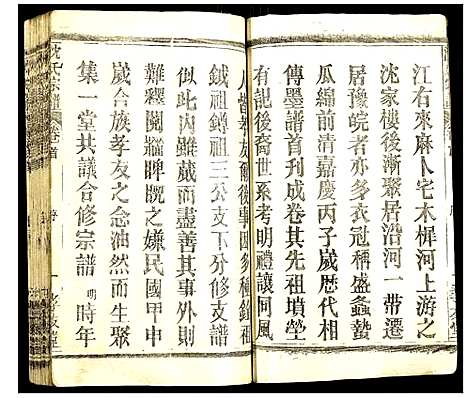 江右來麻卜宅木樨河上游之
沈家樓後漸聚居沿河一帶遷
居豫皖者亦多衣冠稱盛螽蟄
瓜綿前清嘉慶丙子歲歷代相
傳墨譜首刊成卷其先祖墳塋
有記後裔世系考明禮讓何風
鉞祖鐏祖三公支下分修支譜
似此内雖歲而盡善其事次則
難釋鬩牆睥睨之嫌民國甲申
歲合族孝友之念油然而生聚
集一堂共議合修宗譜明時年
沈氏宗譜 卷首 序